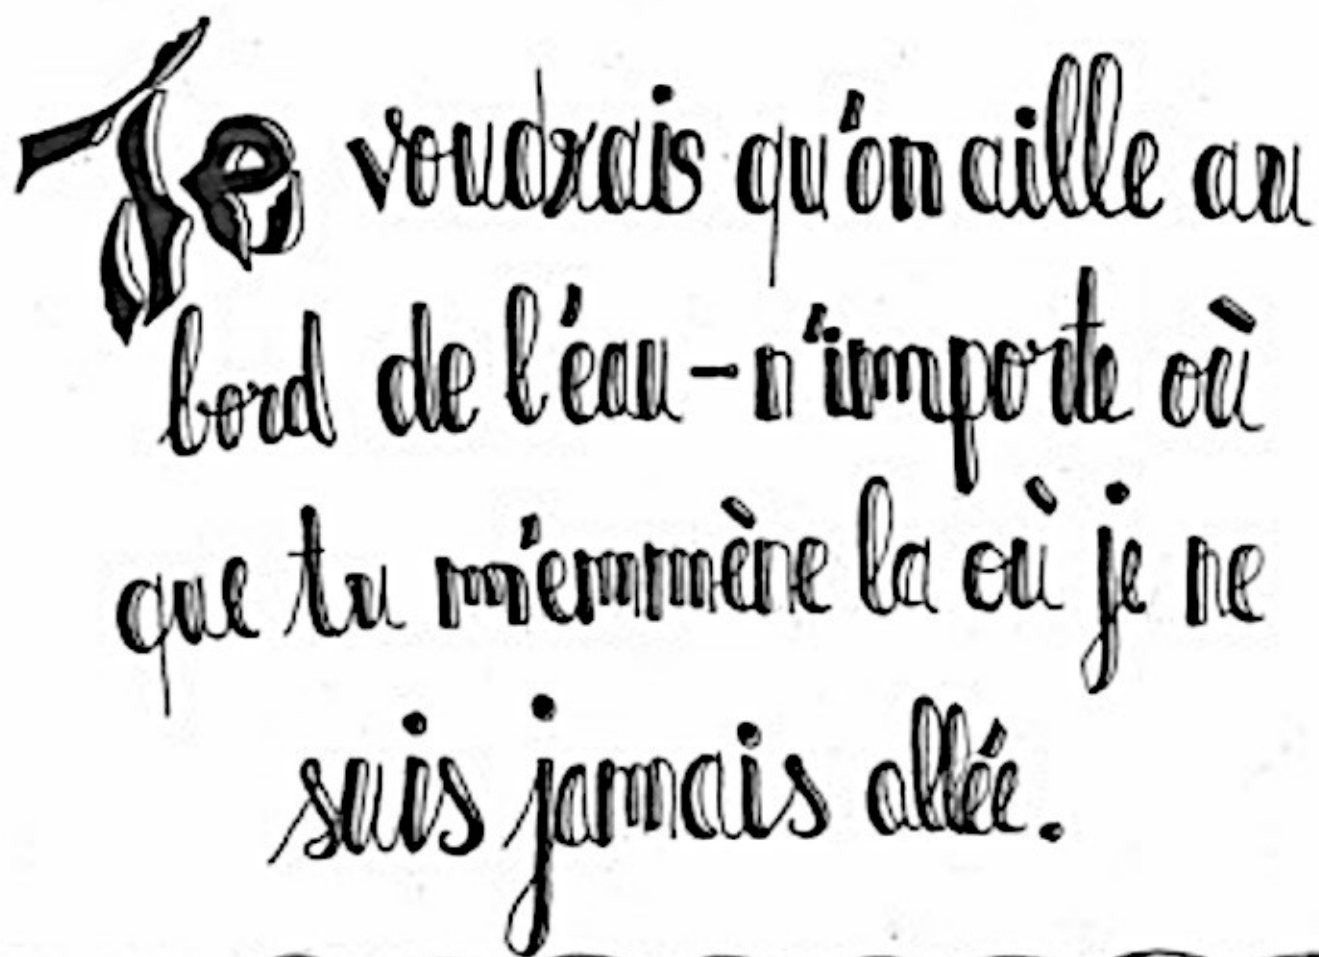 Je voudrais qu'on aille au
bord de l'éau - n'importe où
que tu m'emmène la où je ne
suis jamais allée.